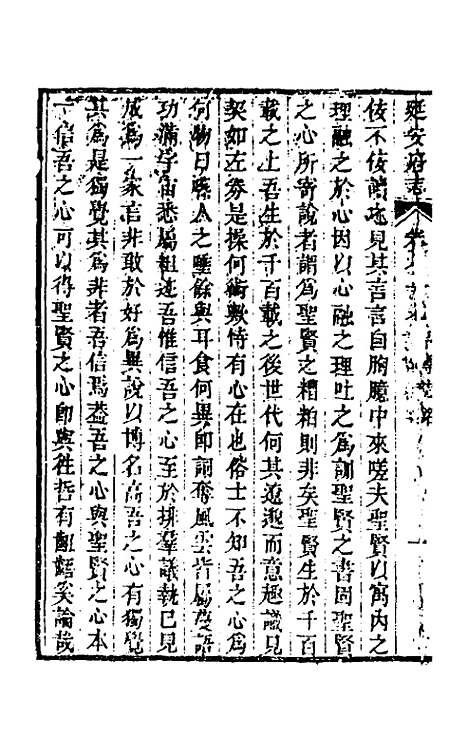 延安府志
伎不伎讀述見其言言自胸臆中來嗟夫聖賢以寓內之
理融之於心因以心融之理吐之為訓聖賢之書固聖賢
之心所寄說者謂為聖賢之糟粕則非矣聖賢生於千百
載之上吾生於千百載之後世代何其遼邈而意趣識見
契如左券是操何術數恃有心在也俗士不知吾之心為
何物日啜人之醨餘與耳食何異即詞奪風雲皆屬疣語
功滿宇宙悉屬粗迹吾惟信吾之心至於排羣議執己見
成為一家言非敢於好為異說以博名高吾之心有獨覺
其為是獨覺其為非者吾信焉葢吾之心與聖賢之心本
一信吾之心可以得聖賢之心即與徃哲有齟齬矣論哉